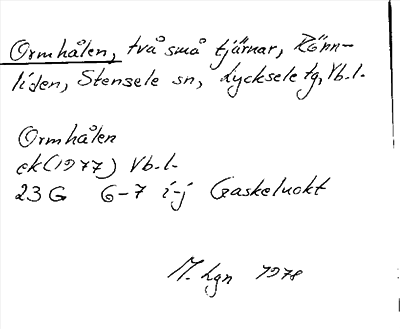 Ormhålen, två små tjärnar, Rönn-
liden, Stensele sn, Lycksele tg, Vb.l.
Ormhålen
ek (1977) Vb.l.
23 G 6-7 i-j Gaskeluokt
M. Lgn 1978